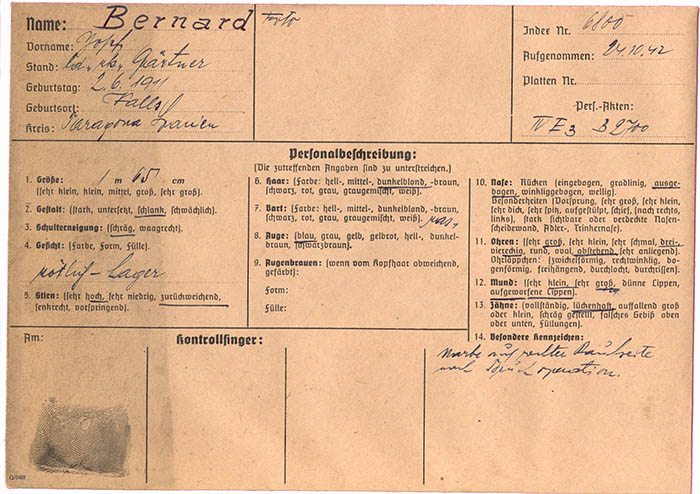 Name: Bernard
Foto
Vorname: Josef
Stand: led., rk., Gärtner
Geburtstag: 2.6.1911
Geburtsort: Falls
Kreis: Taragona Spanien
Index Nr. 6800
Aufgenommen: 24.10.42
Platten Nr.
Pers.-Akten:
IV E 3 B 2700
Personalbeschreibung:
(Die zutreffenden Angaben sind zu unterstreichen.)
1. Größe: 1 m 65 cm
(sehr klein, klein, mittel, groß, sehr groß).
2. Gestalt: (stark, untersetzt, schlank, schwächlich).
3. Schulterneigung: (schräg, waagrecht).
4. Gesicht: (Farbe, Form, Fülle).
rötlich-hager
5. Stirn: (sehr hoch, sehr niedrig, zurückweichend,
senkrecht, vorspringend).
6. Haar: (Farbe: hell-, mittel-, dunkelblond, -braun,
schwarz, rot, grau, graugemischt, weiß).
7. Bart: (Farbe: hell-, mittel-, dunkelblond, -braun,
schwarz, rot, grau, graugemischt, weiß). ras.
8. Auge: (blau, grau, gelb, gelbrot, hell-, dunkel-
braun, schwarzbraun).
9. Augenbrauen: (wenn vom Kopfhaar abweichend,
gefärbt):
Form:
Fülle:
10. Nase: Rücken (eingebogen, gradlinig, ausge-
bogen, winkliggebogen, wellig).
Besonderheiten (Vorsprung, sehr groß, sehr klein,
sehr dick, sehr spitz, aufgestülpt, schief, (nach rechts,
links), stark sichtbare oder verdeckte Nasen-
scheidewand, Adler-, Trinkernase).
11. Ohren: (sehr groß, sehr klein, sehr schmal, drei-,
viereckig, rund, oval, abstehend, sehr anliegend).
Ohrläppchen: (zwickelförmig, rechtwinklig, bo-
genförmig, freihängend, durchlocht, durchrissen).
12. Mund: (sehr klein, sehr groß, dünne Lippen,
aufgeworfene Lippen).
13. Zähne: (vollständig, lückenhaft, auffallend groß
oder klein, schräg gestellt, falsches Gebiß oben
oder unten, Füllungen).
14. Besondere Kennzeichen:
Narbe auf rechter Bauchseite
nach Bruchoperation.
Am:
Kontrollfinger: